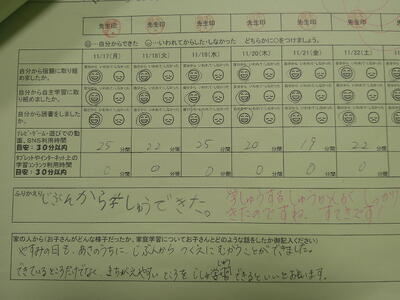 先生印 先生印 先生印 先生印 先生印 先生印
…自分からできた …いわれてからした・しなかった どちらかに○をつけましょう。
11/17(月) 11/18(火) 11/19(水) 11/20(木) 11/21(金) 11/22(土)
自分から宿題に取り組めましたか。
自分から自主学習に取り組めましたか。
自分から読書をしましたか。
テレビ・ゲーム・遊びでの動画、SNS利用時間
目安:30分以内
25分間 22分間 25分間 20分間 19分間 22分間
タブレットやインターネット上の学習コンテンツ利用時間
目安:30分以内
0分間 0分間 0分間 0分間 0分間
ふりかえり
じぶんから学しゅうできた。
学しゅうする しゅうかんが しっかり
きたのですね。すてきです!
家の人から(お子さんがどんな様子だったか、家庭学習についてお子さんとどのような話をしたか御記入ください)
やすみの日も、あさのうちに、じぶんから つくえに むかうことができました。
できているところだけでなく、まちがえやすい ところを じしゅ学習できるといいとおもいます。